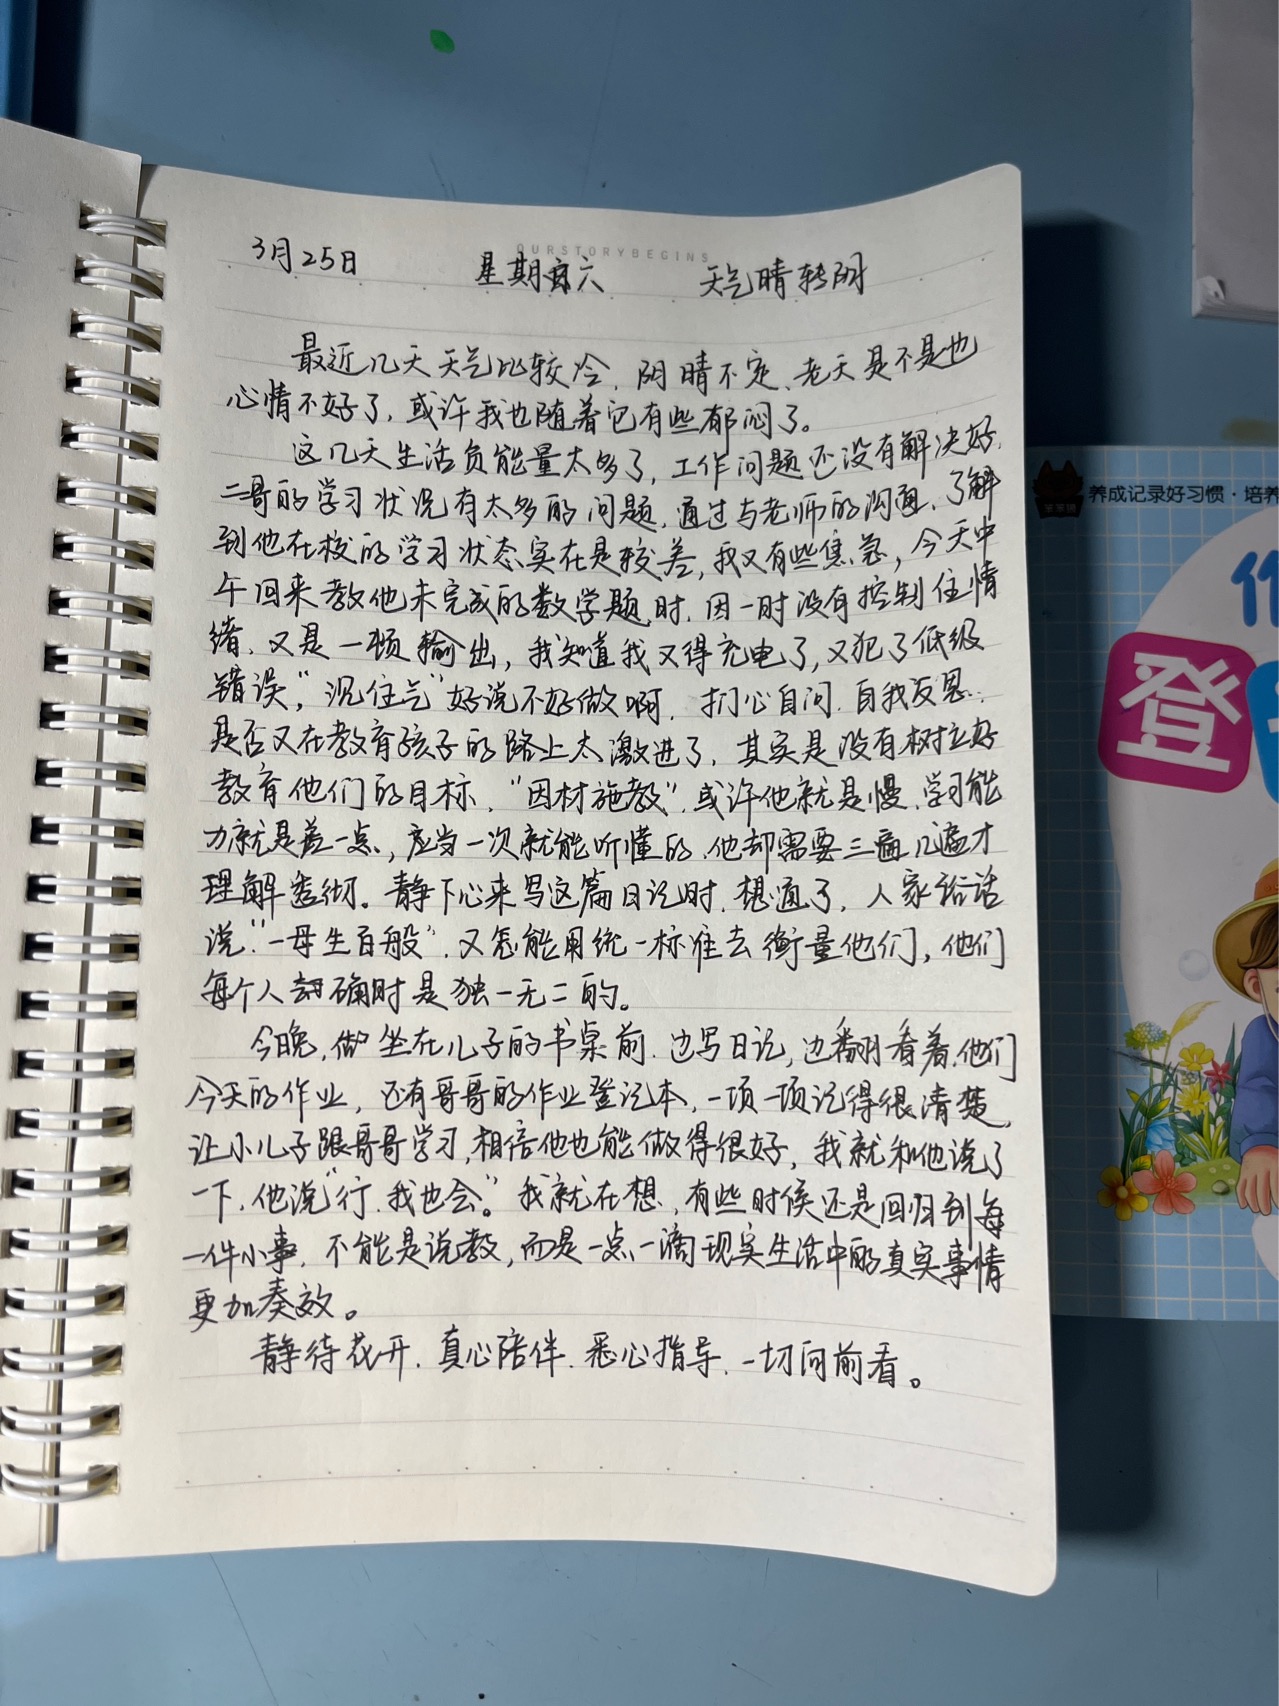 OURSTORYBEGINS
3月25日 星期六 天气晴转阴
最近几天天气比较冷，阴晴不定、老天是不是也
心情不好了，或许我也随着它有些郁闷了。
这几天生活负能量太多了，工作问题还没有解决好，
二哥的学习状况有太多的问题，通过与老师的沟通，了解
到他在校的学习状态实在是较差，我又有些焦急，今天中
午回来教他未完成的数学题时，因一时没有控制住情
绪，又是一顿输出，我知道我又得充电了，又犯了低级
错误，“沉住气”好说不好做啊，扪心自问，自我反思，
是否又在教育孩子的路上太激进了，其实是没有树立好
教育他们的目标，“因材施教”，或许他就是慢，学习能
力就是差一点，应当一次就能听懂的，他却需要三遍几遍才
理解透彻。静下心来写这篇日记时，想通了，人家俗话
说“一母生百般”，又怎能用统一标准去衡量他们，他们
每个人都确时是独一无二的。
今晚，坐在儿子的书桌前，边写日记，边翻看着他们
今天的作业，还有哥哥的作业登记本，一项一项记得很清楚，
让小儿子跟哥哥学习，相信他也能做得很好，我就和他说了
一下，他说“行，我也会。”我就在想，有些时候还是回归到每
一件小事，不能是说教，而是一点一滴现实生活中的真实事情
更加奏效。
静待花开，真心陪伴，悉心指导，一切向前看。
养成记录好习惯·培养
登